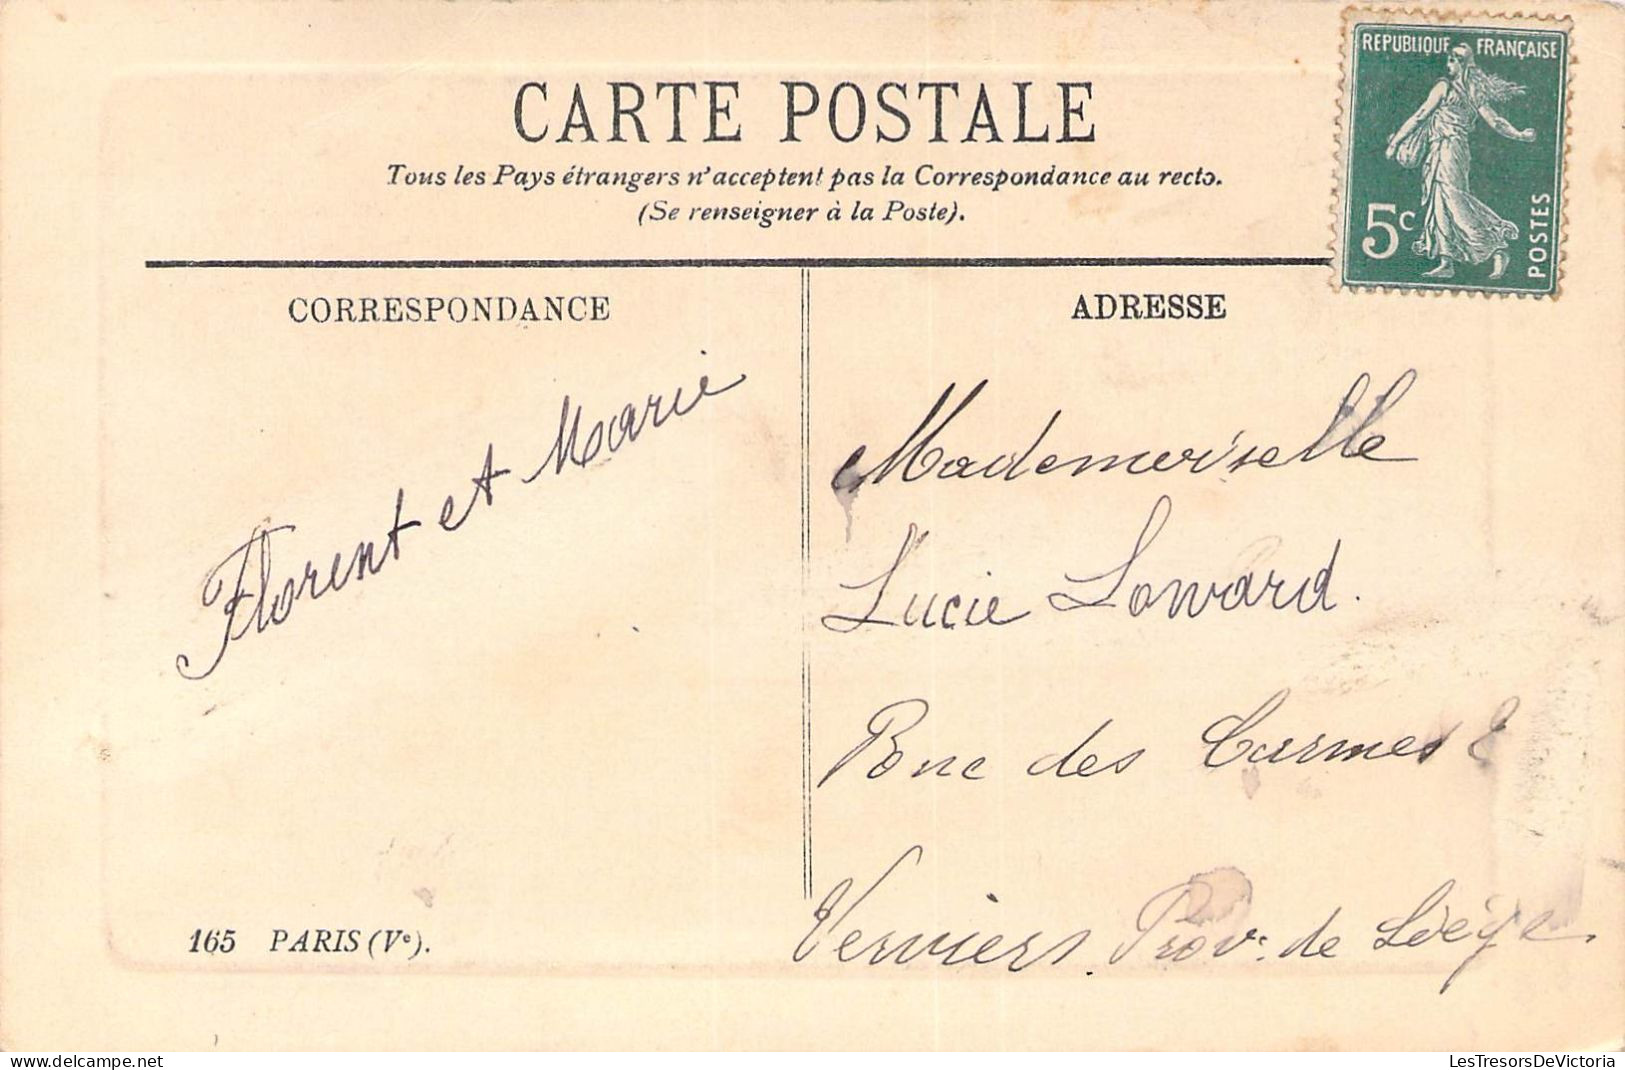 CARTE POSTALE
Tous les Pays étrangers n'acceptent pas la Correspondance au recto.
(Se renseigner à la Poste).
REPUBLIQUE FRANÇAISE
5c
POSTES
CORRESPONDANCE
Florent et Marie
165 PARIS (Ve).
ADRESSE
Mademoiselle
Lucie
des Carmes
Verviers. Prov. de Liège
LesTresorsDeVictoria